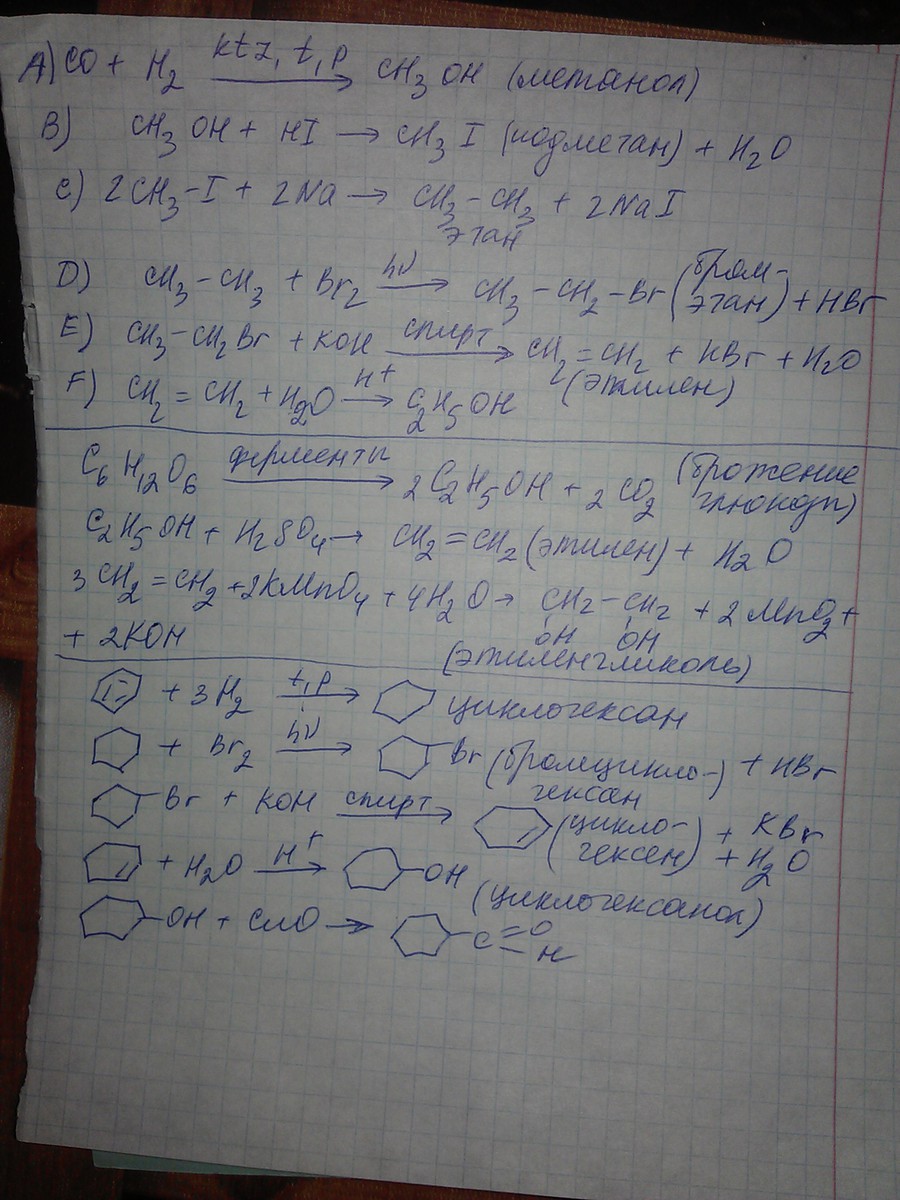 A) CO + H₂ ktz, t, p → CH₃OH (метанол)
B) CH₃OH + HI → CH₃I (иодметан) + H₂O
C) 2CH₃-I + 2Na → CH₃-CH₃ + 2NaI
этан
D) CH₃-CH₃ + Br₂ hν → CH₃-CH₂-Br (бром-
этан) + HBr
E) CH₃-CH₂Br + KOH спирт → CH₂=CH₂ + KBr + H₂O
(этилен)
F) CH₂=CH₂ + H₂O H⁺ → C₂H₅OH
C₆H₁₂O₆ ферменты → 2C₂H₅OH + 2CO₂ (брожение
глюкозы)
C₂H₅OH + H₂SO₄ → CH₂=CH₂ (этилен) + H₂O
3CH₂=CH₂ + 2KMnO₄ + 4H₂O → CH₂-CH₂ + 2MnO₂ +
OH OH
+ 2KOH (этиленгликоль)
+ 3H₂ t, p → циклогексан
+ Br₂ hν → Br (бромцикло-
гексан) + HBr
Br + KOH спирт → (цикло-
гексен) + KBr
+ H₂O
+ H₂O H⁺ → OH
(циклогексанол)
OH + CuO → C=O
H